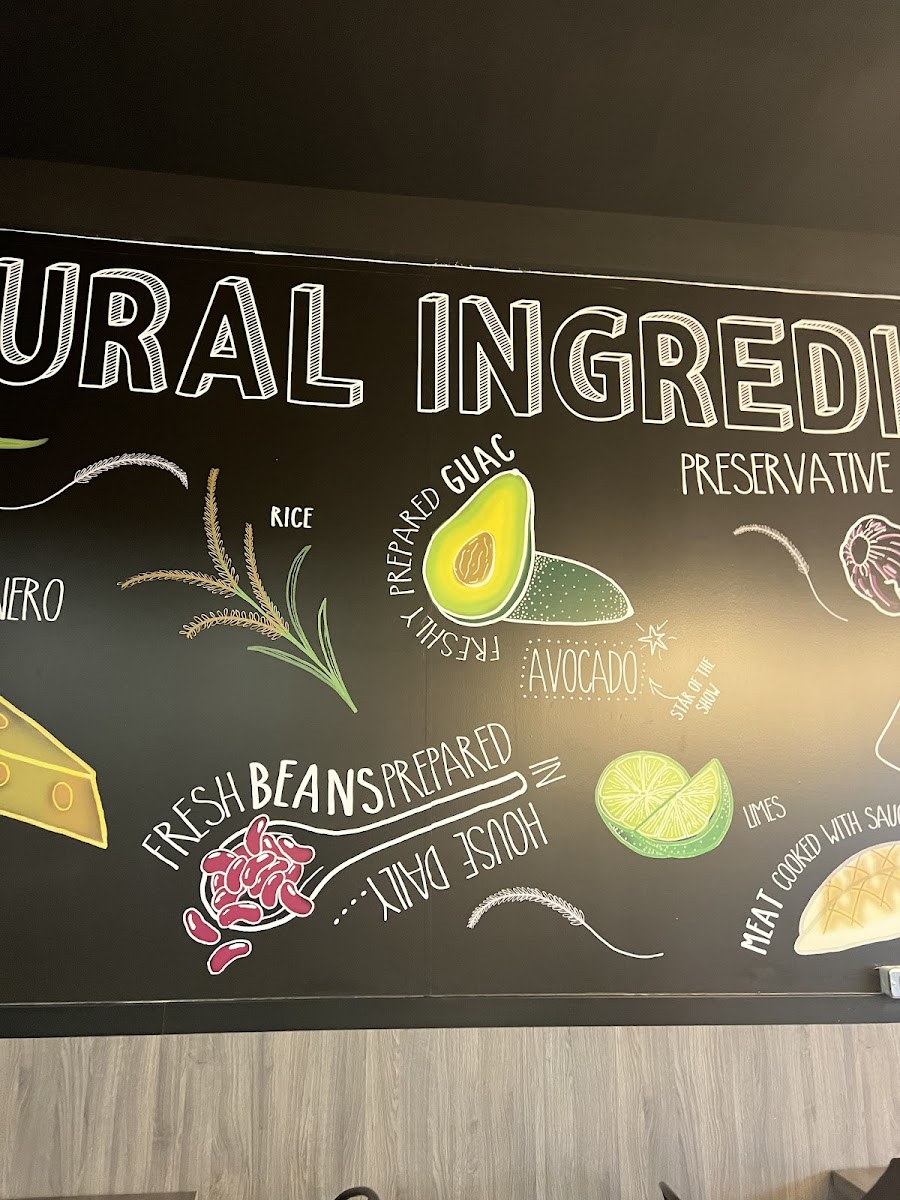 URAL INGREDI
PRESERVATIVE
RICE
NERO
FRESHLY PREPARED GUAC
AVOCADO
STAR OF THE
SHOW
FRESH BEANS PREPARED
IN
HOUSE DAILY.....
LIMES
MEAT COOKED WITH SAUC